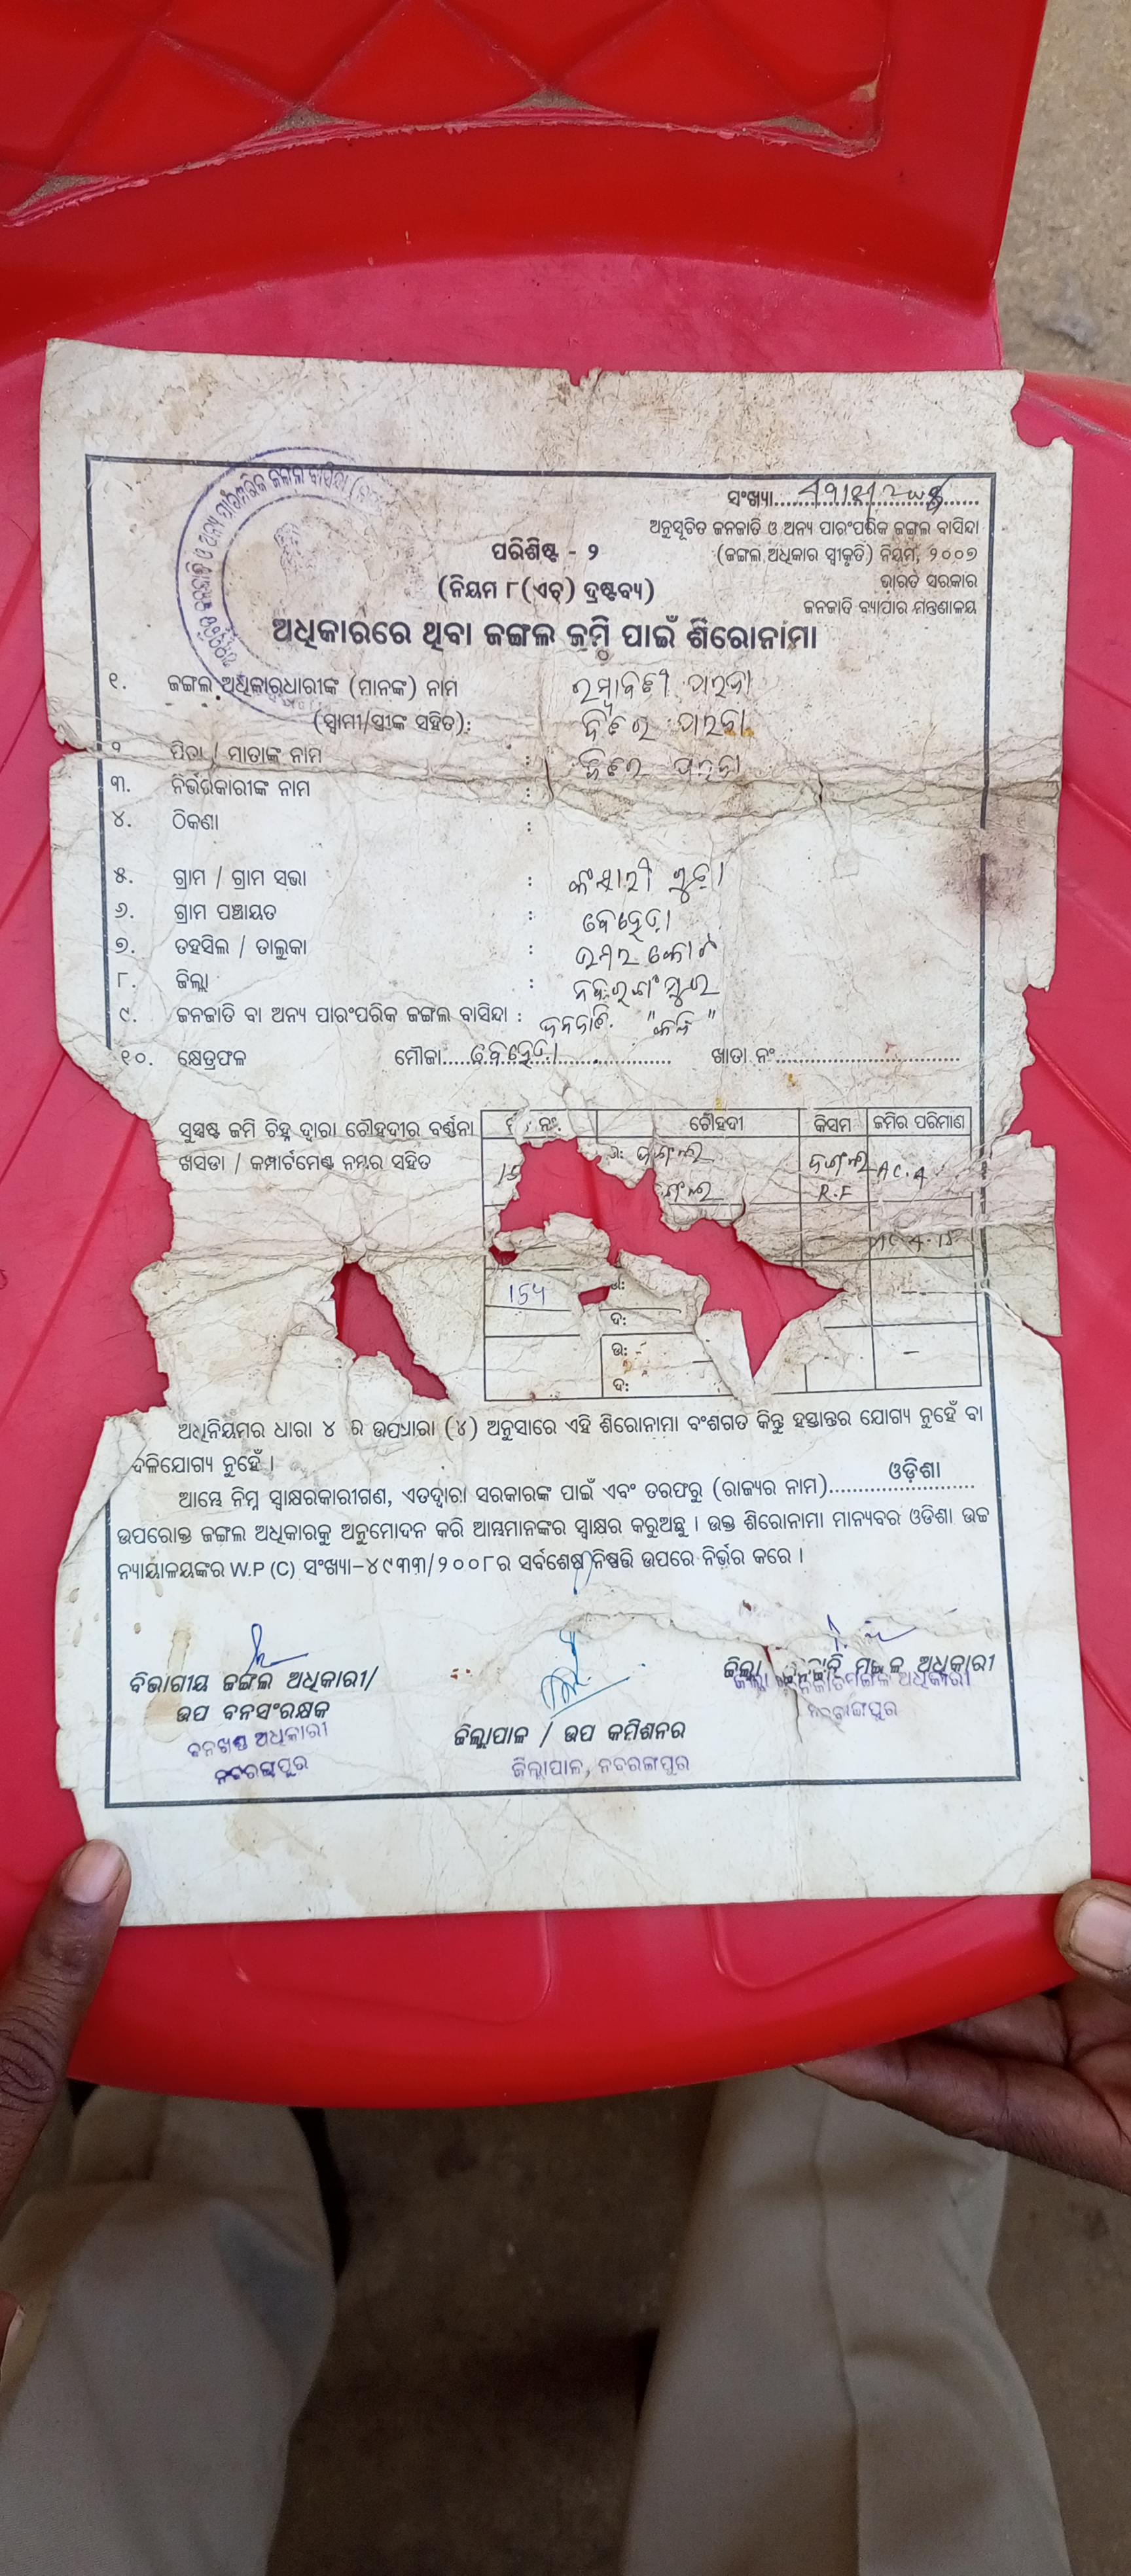 ସଂଖ୍ୟା
ଅନୁସୂଚିତ ଜନଜାତି ଓ ଅନ୍ୟ ପାରଂପରିକ ଜଙ୍ଗଲ ବାସିନ୍ଦା
(ଜଙ୍ଗଲ ଅଧିକାର ସ୍ୱୀକୃତି) ନିୟମ, ୨୦୦୭
ଭାରତ ସରକାର
ଜନଜାତି ବ୍ୟାପାର ମନ୍ତ୍ରଣାଳୟ
ପରିଶିଷ୍ଟ - ୨
(ନିୟମ ୮(ଏଚ୍) ଦ୍ରଷ୍ଟବ୍ୟ)
ଅଧିକାରରେ ଥିବା ଜଙ୍ଗଲ ଜମି ପାଇଁ ଶିରୋନାମା
୧. ଜଙ୍ଗଲ ଅଧିକାରଧାରୀଙ୍କ (ମାନଙ୍କ) ନାମ
(ସ୍ୱାମୀ/ସ୍ତ୍ରୀଙ୍କ ସହିତ):
୨. ପିତା / ମାତାଙ୍କ ନାମ :
୩. ନିର୍ଭରକାରୀଙ୍କ ନାମ :
୪. ଠିକଣା :
୫. ଗ୍ରାମ / ଗ୍ରାମ ସଭା :
୬. ଗ୍ରାମ ପଞ୍ଚାୟତ : ବେହେଡ଼ା
୭. ତହସିଲ / ତାଲୁକା : ଉମରକୋଟ
୮. ଜିଲ୍ଲା : ନବରଂଗପୁର
୯. ଜନଜାତି ବା ଅନ୍ୟ ପାରଂପରିକ ଜଙ୍ଗଲ ବାସିନ୍ଦା : ଜନଜାତି
୧୦. କ୍ଷେତ୍ରଫଳ ମୌଜା.... ବେହେଡ଼ା .... ଖାତା ନଂ....
ସୁସ୍ପଷ୍ଟ ଜମି ଚିହ୍ନ ଦ୍ୱାରା ଚୌହଦୀର ବର୍ଣ୍ଣନା
ଖସଡା / କମ୍ପାର୍ଟମେଣ୍ଟ ନମ୍ବର ସହିତ
ନଂ. ଚୌହଦୀ କିସମ ଜମିର ପରିମାଣ
ଉ: ଜଙ୍ଗଲ ଜଙ୍ଗଲ AC.4
R.F
154 ଉ:
ଦ:
ଉ: - -
ଦ:
ଅଧିନିୟମର ଧାରା ୪ ର ଉପଧାରା (୪) ଅନୁସାରେ ଏହି ଶିରୋନାମା ବଂଶଗତ କିନ୍ତୁ ହସ୍ତାନ୍ତର ଯୋଗ୍ୟ ନୁହେଁ ବା
ବଳିଯୋଗ୍ୟ ନୁହେଁ ।
ଆମ୍ଭେ ନିମ୍ନ ସ୍ୱାକ୍ଷରକାରୀଗଣ, ଏତଦ୍ୱାରା ସରକାରଙ୍କ ପାଇଁ ଏବଂ ତରଫରୁ (ରାଜ୍ୟର ନାମ)....ଓଡ଼ିଶା....
ଉପରୋକ୍ତ ଜଙ୍ଗଲ ଅଧିକାରକୁ ଅନୁମୋଦନ କରି ଆମ୍ଭମାନଙ୍କର ସ୍ୱାକ୍ଷର କରୁଅଛୁ । ଉକ୍ତ ଶିରୋନାମା ମାନ୍ୟବର ଓଡିଶା ଉଚ୍ଚ
ନ୍ୟାୟାଳୟଙ୍କର W.P (C) ସଂଖ୍ୟା-୪୯୩୩/୨୦୦୮ର ସର୍ବଶେଷ ନିଷ୍ପତ୍ତି ଉପରେ ନିର୍ଭର କରେ ।
ବିଭାଗୀୟ ଜଙ୍ଗଲ ଅଧିକାରୀ/
ଉପ ବନସଂରକ୍ଷକ
ବନଖଣ୍ଡ ଅଧିକାରୀ
ନବରଙ୍ଗପୁର
ଜିଲ୍ଲାପାଳ / ଉପ କମିଶନର
ଜିଲ୍ଲାପାଳ, ନବରଙ୍ଗପୁର
ଜିଲ୍ଲା ମଙ୍ଗଳ ଅଧିକାରୀ
ଜିଲ୍ଲା ଜନଜାତି ମଙ୍ଗଳ ଅଧିକାରୀ
ନବରଙ୍ଗପୁର